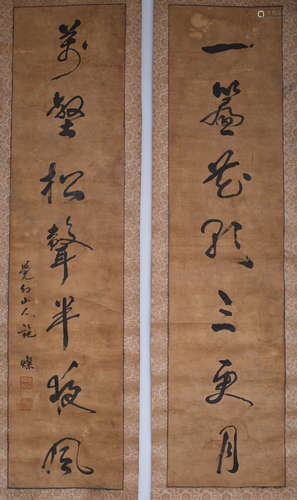 一簾花影三更月
萬壑松聲半夜風
山人